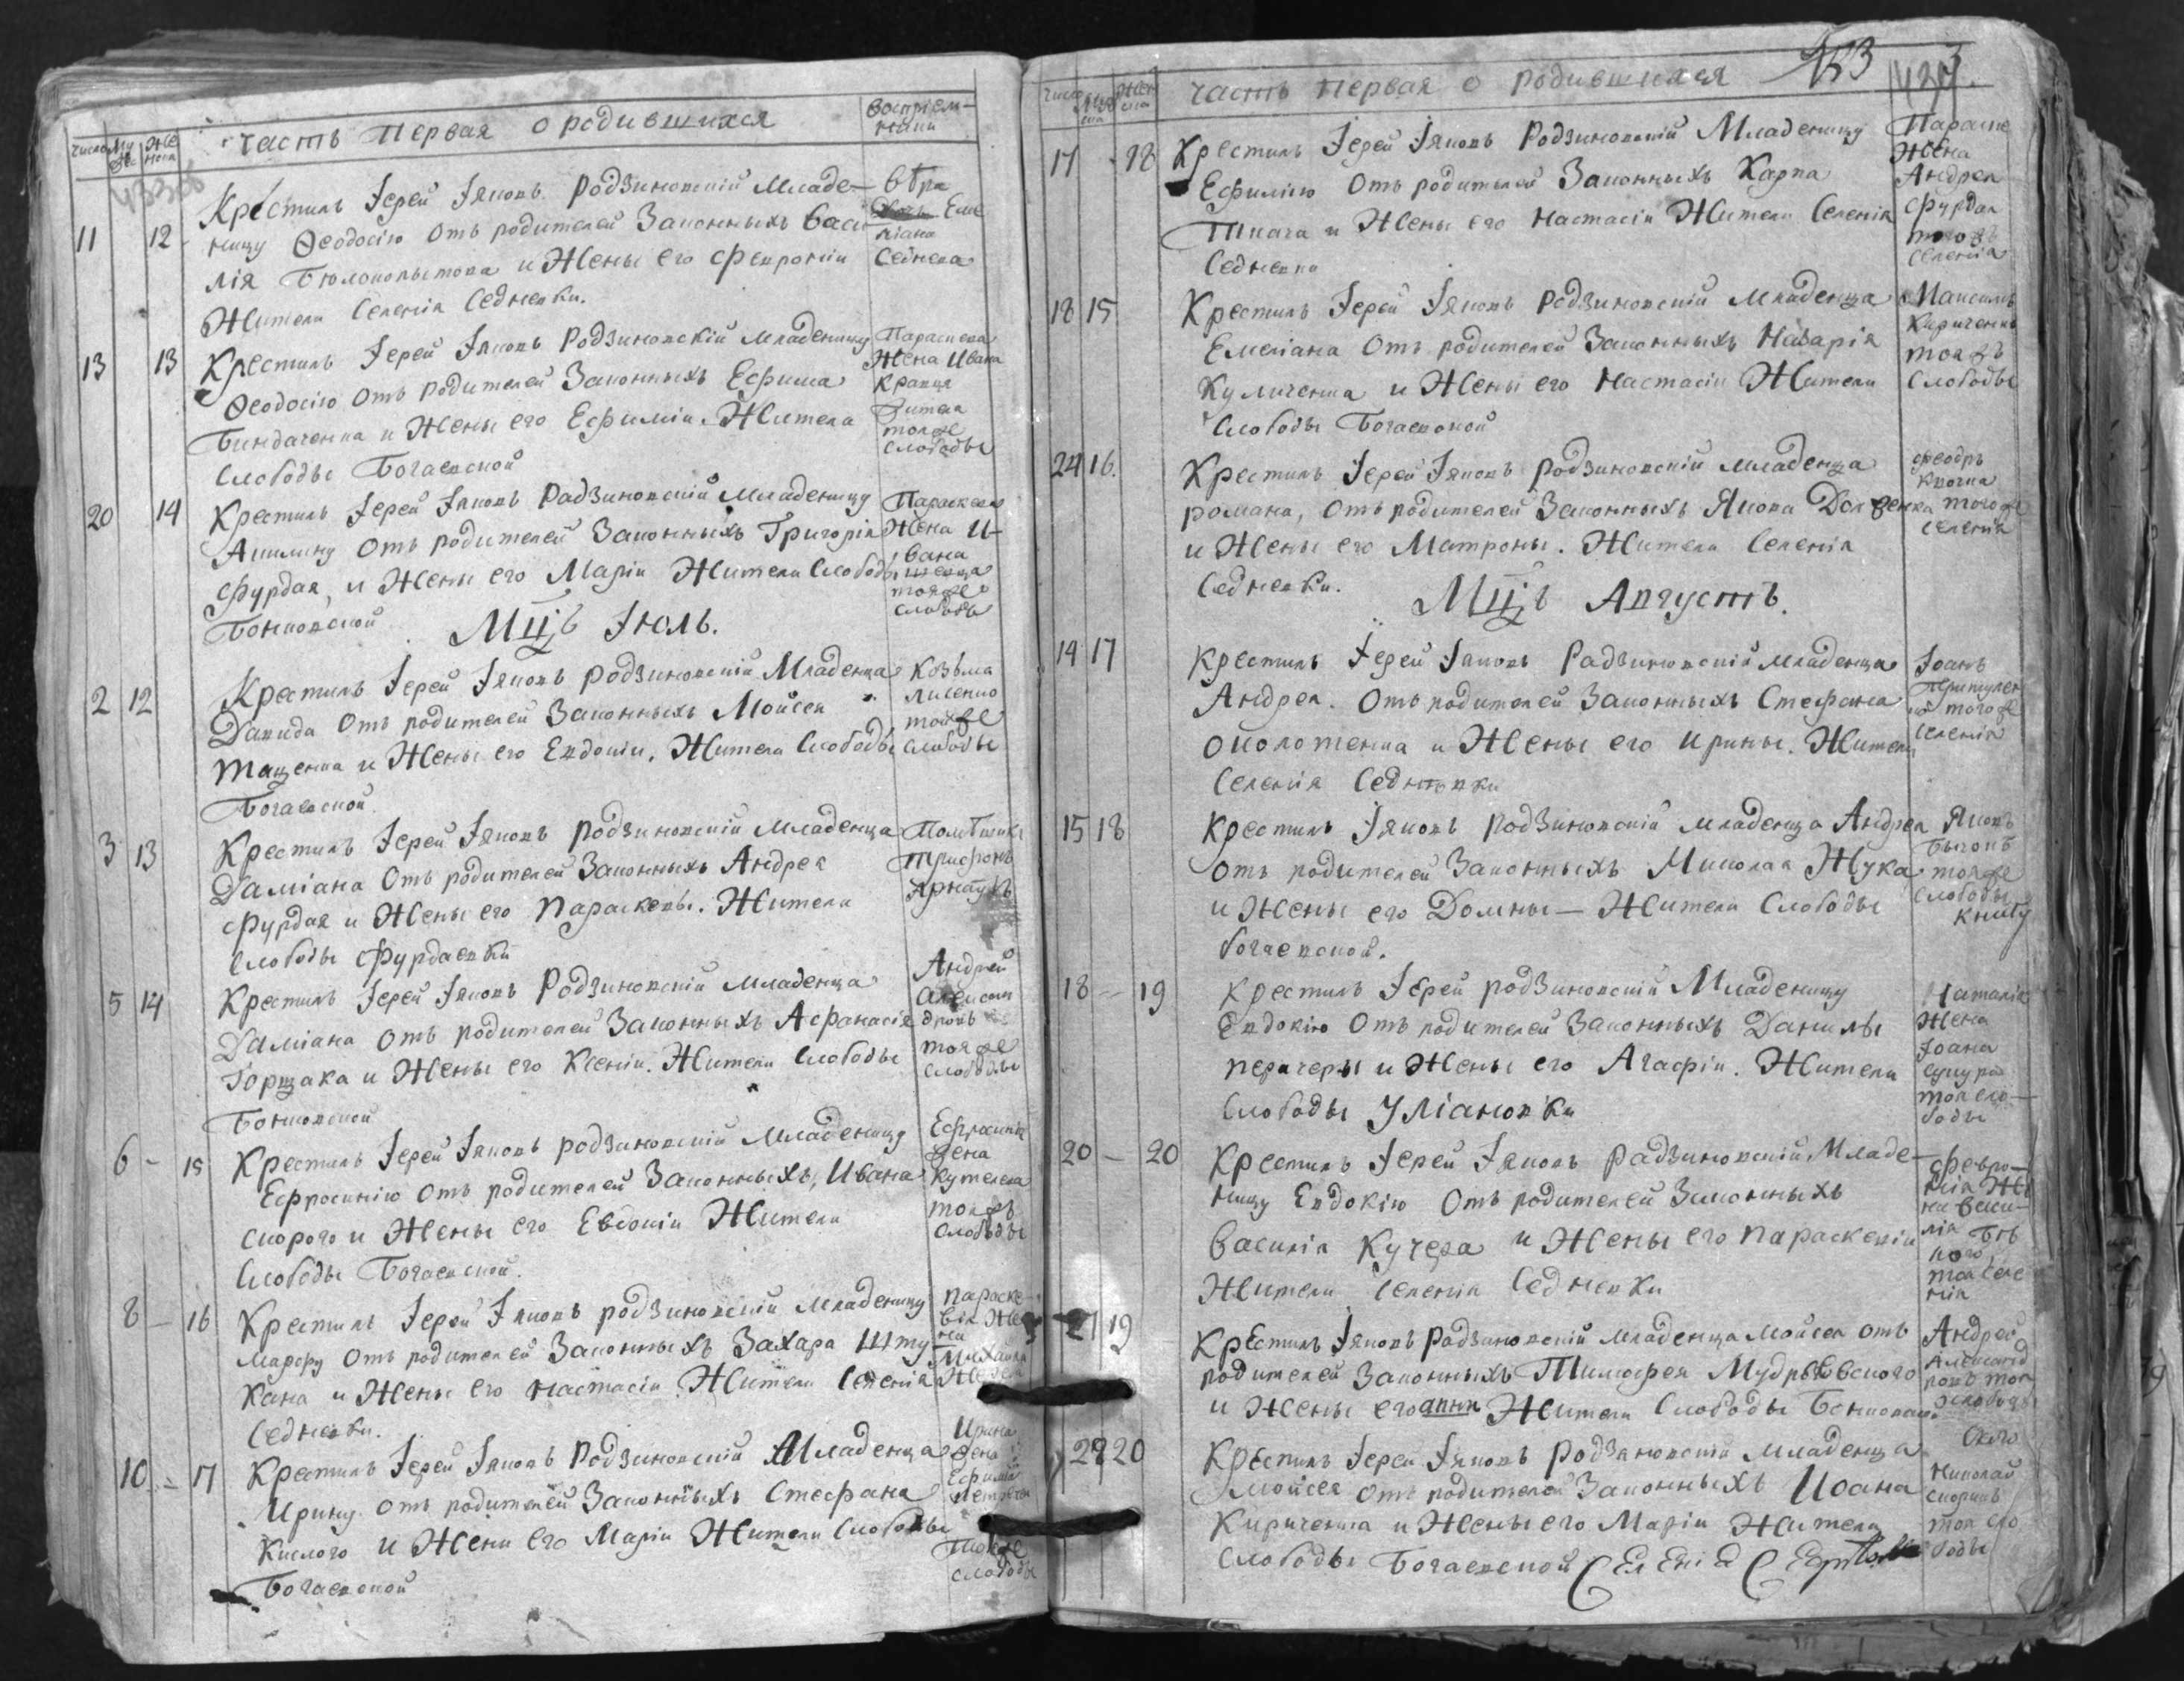 Число
Му
Же
часть первая о родившихся
Воспріем-
ники
11 12 Крестилъ Іерей Іяковъ Родзиновскій Младе-
ницу Ѳеодосію отъ родителей Законныхъ Васи
лія и Жены его Февроніи
Жители Селенія Седневки.
Седнева
13 13 Крестилъ Іерей Іяковъ Родзиновскій младеницу
Ѳеодосію отъ родителей Законныхъ Ефима
Биндаченка и Жены его Ефиміи. Жители
Слободы Богаевской
Параскева
Жена Ивана
Кравця
жителя
тояже
слободы
20 14 Крестилъ Іерей Іяковъ Радзиновскій младеницу
Акилину отъ родителей Законныхъ Григорія
Фурдая, и Жены его Маріи Жители Слободы
Бонковской
Параскева
Жена И-
вана
тояже
слободы
Мцъ Іюль.
2 12 Крестилъ Іерей Іяковъ родзиновскій Младенца
Давида отъ родителей Законныхъ Мойсея
Тащенка и Жены его Евдокіи. Жители Слободы
Богаевской
Козьма
Лисенко
тойже
слободы
3 13 Крестилъ Іерей Іяковъ родзиновскій младенца
Даміана отъ родителей Законныхъ Андрея
Фурдая и Жены его Параскевы. Жители
Слободы Фурдаевки
Помѣщикъ
Трифонъ
5 14 Крестилъ Іерей Іяковъ Родзиновскій младенца
Даміана отъ родителей Законныхъ Афанасія
Горщака и Жены его Ксеніи. Жители Слободы
Бонковской
Андрей
Алексан
дровъ
тояже
слободы
6 - 15 Крестилъ Іерей Іяковъ родзиновскій Младеницу
Ефросинію отъ родителей Законныхъ, Ивана
Скорого и Жены его Евдокіи Жители
Слободы Богаевской.
Ефросинія
жена
Кутелева
тояжъ
слободы
8 - 16 Крестилъ Іерей Іяковъ родзиновскій младеницу
Марфу отъ родителей Законныхъ Захара Шту-
кана и Жены его Настасіи. Жители Селенія
Седневки.
Параске-
вія Же
на
Михаила
10 - 17 Крестилъ Іерей Іяковъ Родзиновскій Младенца
Ирину отъ родителей Законныхъ Стефана
Кислого и Жени его Маріи Жители Слободы
Богаевской
Ирина
жена
Ефима
тояже
слободы
число
часть первая о родившихся
17 - 18 Крестилъ Іерей Іяковъ Родзиновскій Младеницу
Ефимію отъ родителей Законныхъ Карпа
Ткача и Жены его Настасіи Жители Селенія
Седневки
Параске
Жена
Андрея
Фурдая
тогожъ
селенія
18 15 Крестилъ Іерей Іяковъ родзиновскій младенца
Емеліана отъ родителей Законныхъ Назарія
Куличенка и Жены его Настасіи Жители
Слободы Богаевской
Максимъ
Кириченко
тояжъ
слободы
24 16. Крестилъ Іерей Іяковъ родзиновскій младенца
романа, отъ родителей Законныхъ Якова Долженка
и Жены его Матроны. Жители Селенія
Седневки.
Феодръ
тогоже
селенія
Мцъ Августъ.
14 17 Крестилъ Іерей Іяковъ Радзиновскій младенца
Андрея. отъ родителей Законныхъ Стефана
Околотенка и Жены его Ирины. Жители
Селенія Седнѣвки
Іоанъ
тогоже
селенія
15 18 Крестилъ Іяковъ родзиновскій младенца Андрея
отъ родителей Законныхъ Миколая Жука
и Жены его Домны — Жители Слободы
богаевской.
Яковъ
Бычокъ
тояже
слободы
18 - 19 Крестилъ Іерей родзиновскій Младеницу
Евдокію отъ родителей Законныхъ Данилы
Печеры и Жены его Агафіи. Жители
Слободы Уліановки
Наталія
Жена
Іоана
тоя сло-
боды
20 - 20 Крестилъ Іерей Іяковъ радзиновскій Младе-
ницу Евдокію отъ родителей Законныхъ
Василія Кучера и Жены его Параскевіи
Жители Селенія Седневки
Февро-
нія Же
на Васи-
лія
тоя селе
нія
27 19 Крестилъ Іяковъ радзиновскій младенца Мойсея отъ
родителей Законныхъ Тимофея
и Жены его анни Жители Слободы Бонковской
Андрей
Александ
ровъ тоя
28 20 Крестилъ Іерей Іяковъ родзяновскій младенца
Мойсея отъ родителей Законныхъ Иоана
Кириченка и Жены его Маріи Жители
Слободы Богаевской
Николай
Скорикъ
тоя сло
боды